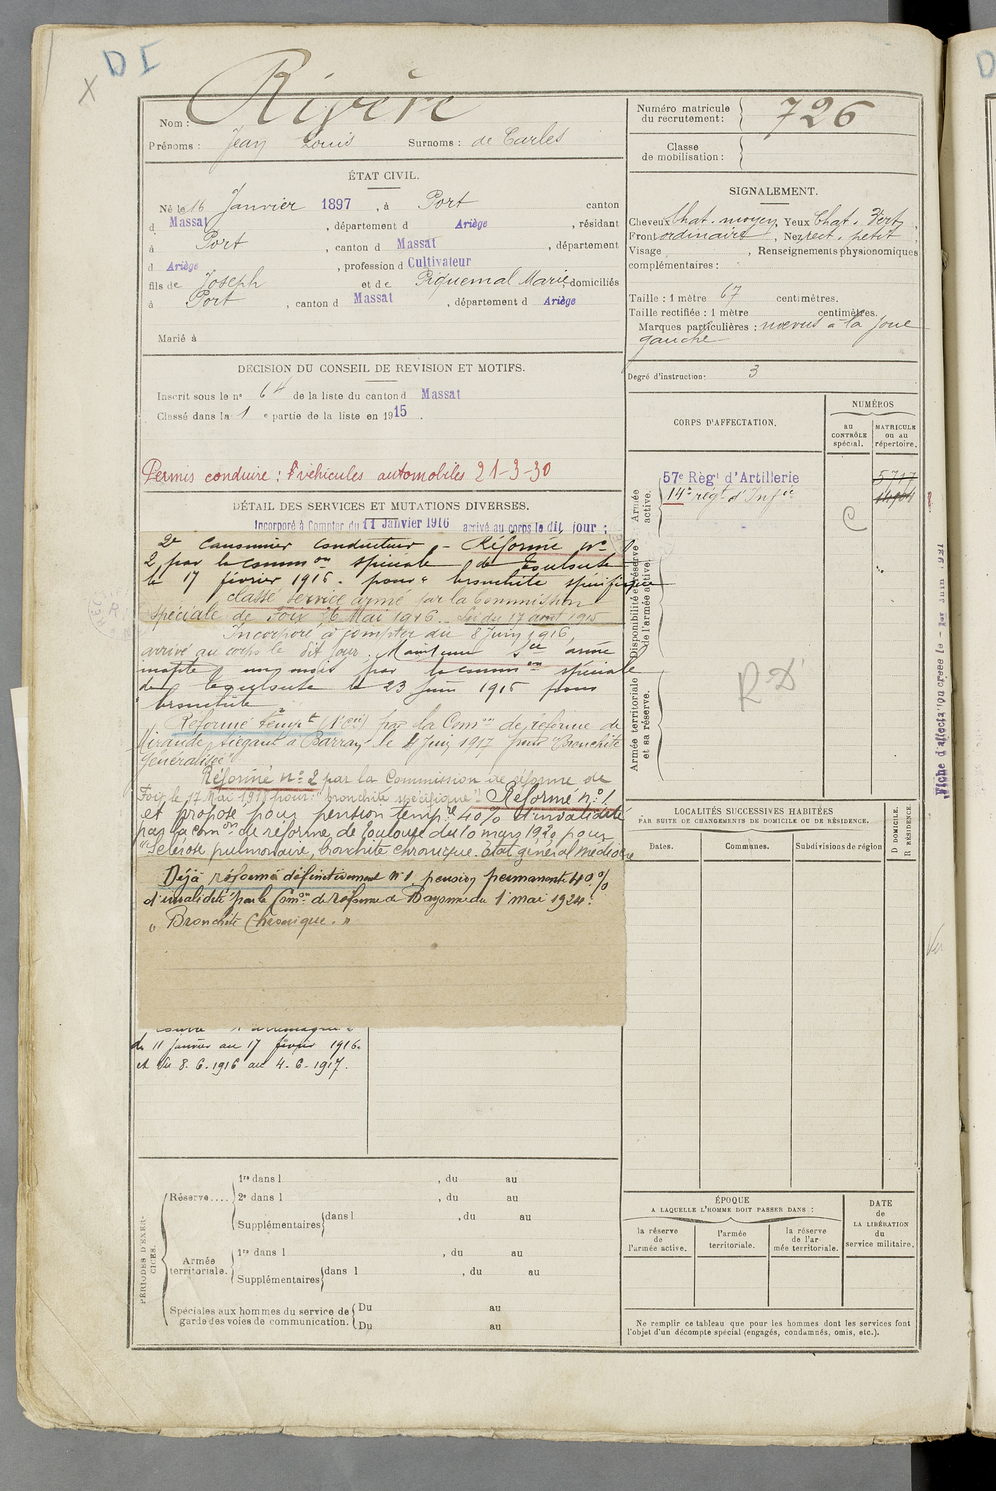 D I
X
Nom : Rivère
Prénoms : Jean Louis Surnoms : de Carles
ÉTAT CIVIL.
Né le 16 Janvier 1897, à Port canton
d Massat, département d Ariège, résidant
à Port, canton d Massat, département
d Ariège, profession d Cultivateur
fils de Joseph et de Piquemal Marie, domiciliés
à Port, canton d Massat, département d Ariège
Marié à
DÉCISION DU CONSEIL DE REVISION ET MOTIFS.
Inscrit sous le nº 64 de la liste du canton d Massat
Classé dans la 1 e partie de la liste en 1915.
Permis conduire : véhicules automobiles 21-3-30
DÉTAIL DES SERVICES ET MUTATIONS DIVERSES.
Incorporé à Compter du 11 Janvier 1916 arrivé au corps le dit jour ;
2e Canonnier Conducteur - Réformé nº
2, par la common spéciale de Toulouse
le 17 février 1916. pour " bronchite spécifique
classé service armé par la Commission
spéciale de Foix, 6 Mai 1916. Loi du 17 août 1915
Incorporé à compter du 8 Juin 1916,
arrivé au corps le dit jour. Maintenu Sce armé
inapte 1 un mois par la common spéciale
de Toulouse le 23 juin 1916 pour
bronchite
Réformé tempt (1) par la Comon de réforme de
Mirande, siégeant à Barran le 4 Juin 1917 pour "Bronchite
généralisée"
Réformé nº 2 par la Commission de réforme de
Foix, le 17 Mai 191 pour : "bronchite spécifique". Réformé nº 1
et proposé pour pension tempre 40% d'invalidité
par la comon de réforme de Toulouse du 10 mars 1920 pour
"Sclérose pulmonaire, bronchite chronique. État général médiocre
Déjà réformé définitivement Nº 1 pension permanente 40%
d'invalidité par la Comon de Réforme de Bayonne du 1 mai 1924.
" Bronchite Chronique. "
du 11 janvier au 17 février 1916.
et du 8.6.1916 au 4.6.1917.
PÉRIODES D'EXERCICES.
Réserve.... 1re dans l , du au
2e dans l , du au
Supplémentaires dans l , du au
Armée territoriale. 1re dans l , du au
Supplémentaires dans l , du au
Spéciales aux hommes du service de garde des voies de communication. Du au
Du au
Numéro matricule du recrutement : 726
Classe de mobilisation :
SIGNALEMENT.
Cheveux Chat. moyen, Yeux Chat. Vert,
Front ordinaire, Nez rect. petit
Visage , Renseignements physionomiques
complémentaires :
Taille : 1 mètre 67 centimètres.
Taille rectifiée : 1 mètre centimètres.
Marques particulières : nœvus à la joue
gauche
Degré d'instruction : 3
CORPS D'AFFECTATION.
NUMÉROS
au CONTRÔLE spécial.
MATRICULE ou au répertoire.
Armée active.
57e Règt d'Artillerie 5717
14e régt d'Infie
C
Disponibilité et réserve de l'armée active.
Armée territoriale et sa réserve.
R D
Fiche d'affectation créée le - 1er Juin 1921
LOCALITÉS SUCCESSIVES HABITÉES
PAR SUITE DE CHANGEMENTS DE DOMICILE OU DE RÉSIDENCE.
Dates.
Communes.
Subdivisions de région
D DOMICILE. R RÉSIDENCE
ÉPOQUE
A LAQUELLE L'HOMME DOIT PASSER DANS :
la réserve de l'armée active.
l'armée territoriale.
la réserve de l'armée territoriale.
DATE de LA LIBÉRATION du service militaire.
Ne remplir ce tableau que pour les hommes dont les services font
l'objet d'un décompte spécial (engagés, condamnés, omis, etc.).